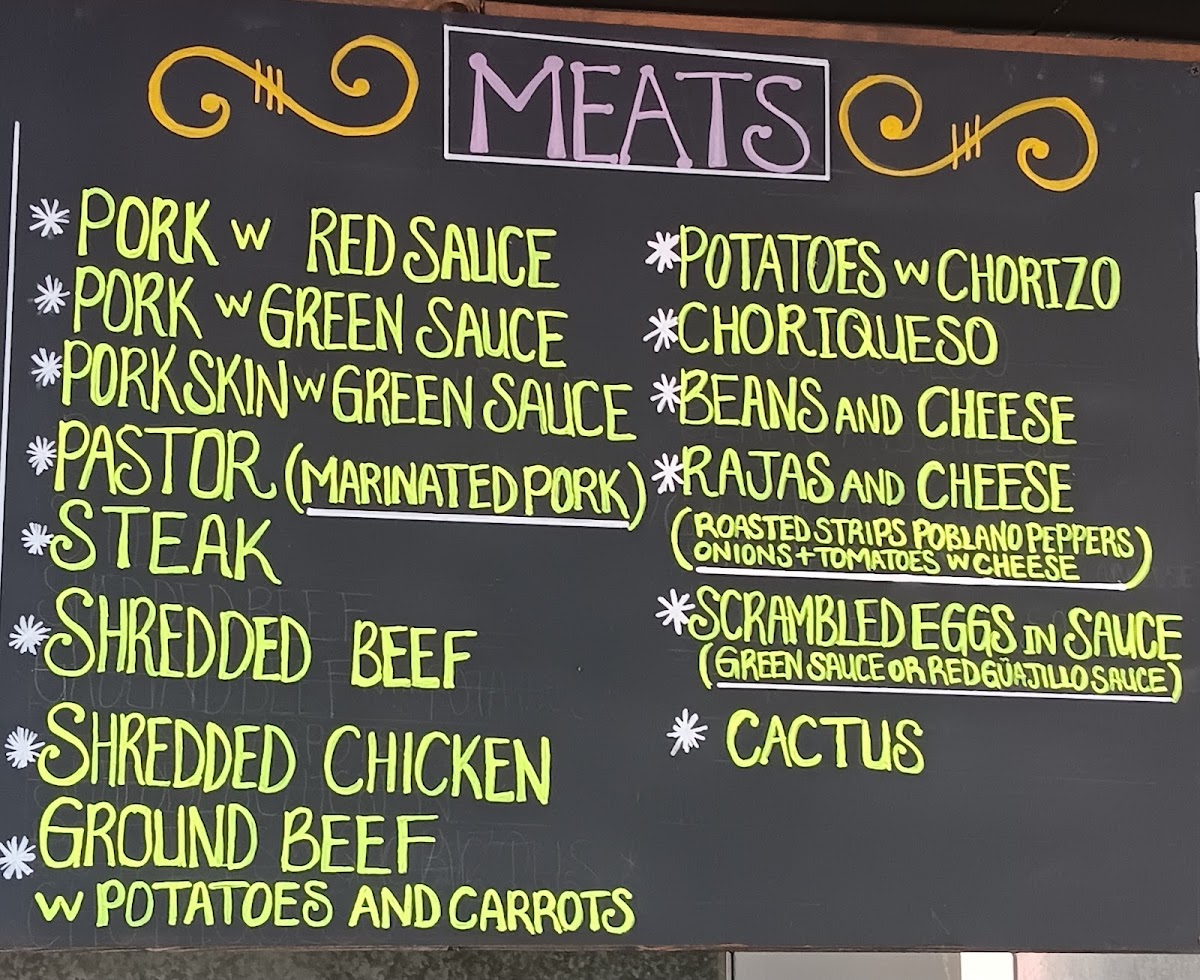 MEATS
* PORK W RED SAUCE
* PORK W GREEN SAUCE
* PORK SKIN W GREEN SAUCE
* PASTOR (MARINATED PORK)
* STEAK
* SHREDDED BEEF
* SHREDDED CHICKEN
* GROUND BEEF
W POTATOES AND CARROTS
* POTATOES W CHORIZO
* CHORIQUESO
* BEANS AND CHEESE
* RAJAS AND CHEESE
(ROASTED STRIPS POBLANO PEPPERS
ONIONS + TOMATOES W CHEESE)
* SCRAMBLED EGGS IN SAUCE
(GREEN SAUCE OR RED GÜAJILLO SAUCE)
* CACTUS